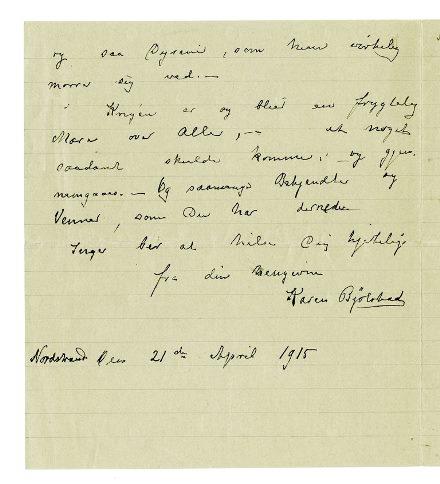 og saa Dyrene, som han virkelig
morer sig ved. –
Krigen er og blir en frygtelig
Mare over Alle, – at noget
saadant skulde komme; – og gjen-
nemgaaes. – Og saamange Bekjendte og
Venner, som Du har dernede
Inger ber at hilse Dig hjertelig
fra din hengivne
Karen Bjölstad
Nordstrand den 21de April 1915